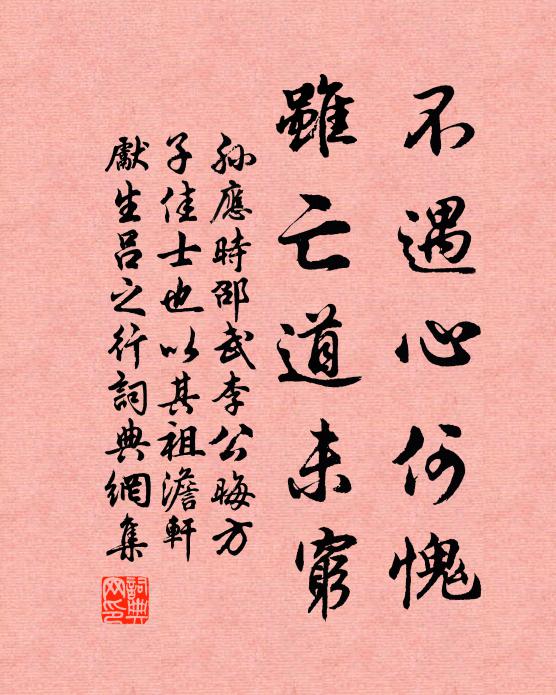 不遇心何愧
雖亡道未窮
孫應時邵武李公晦方
子佳士也以其祖澹軒
獻生呂之行詞典網集
詞典網印